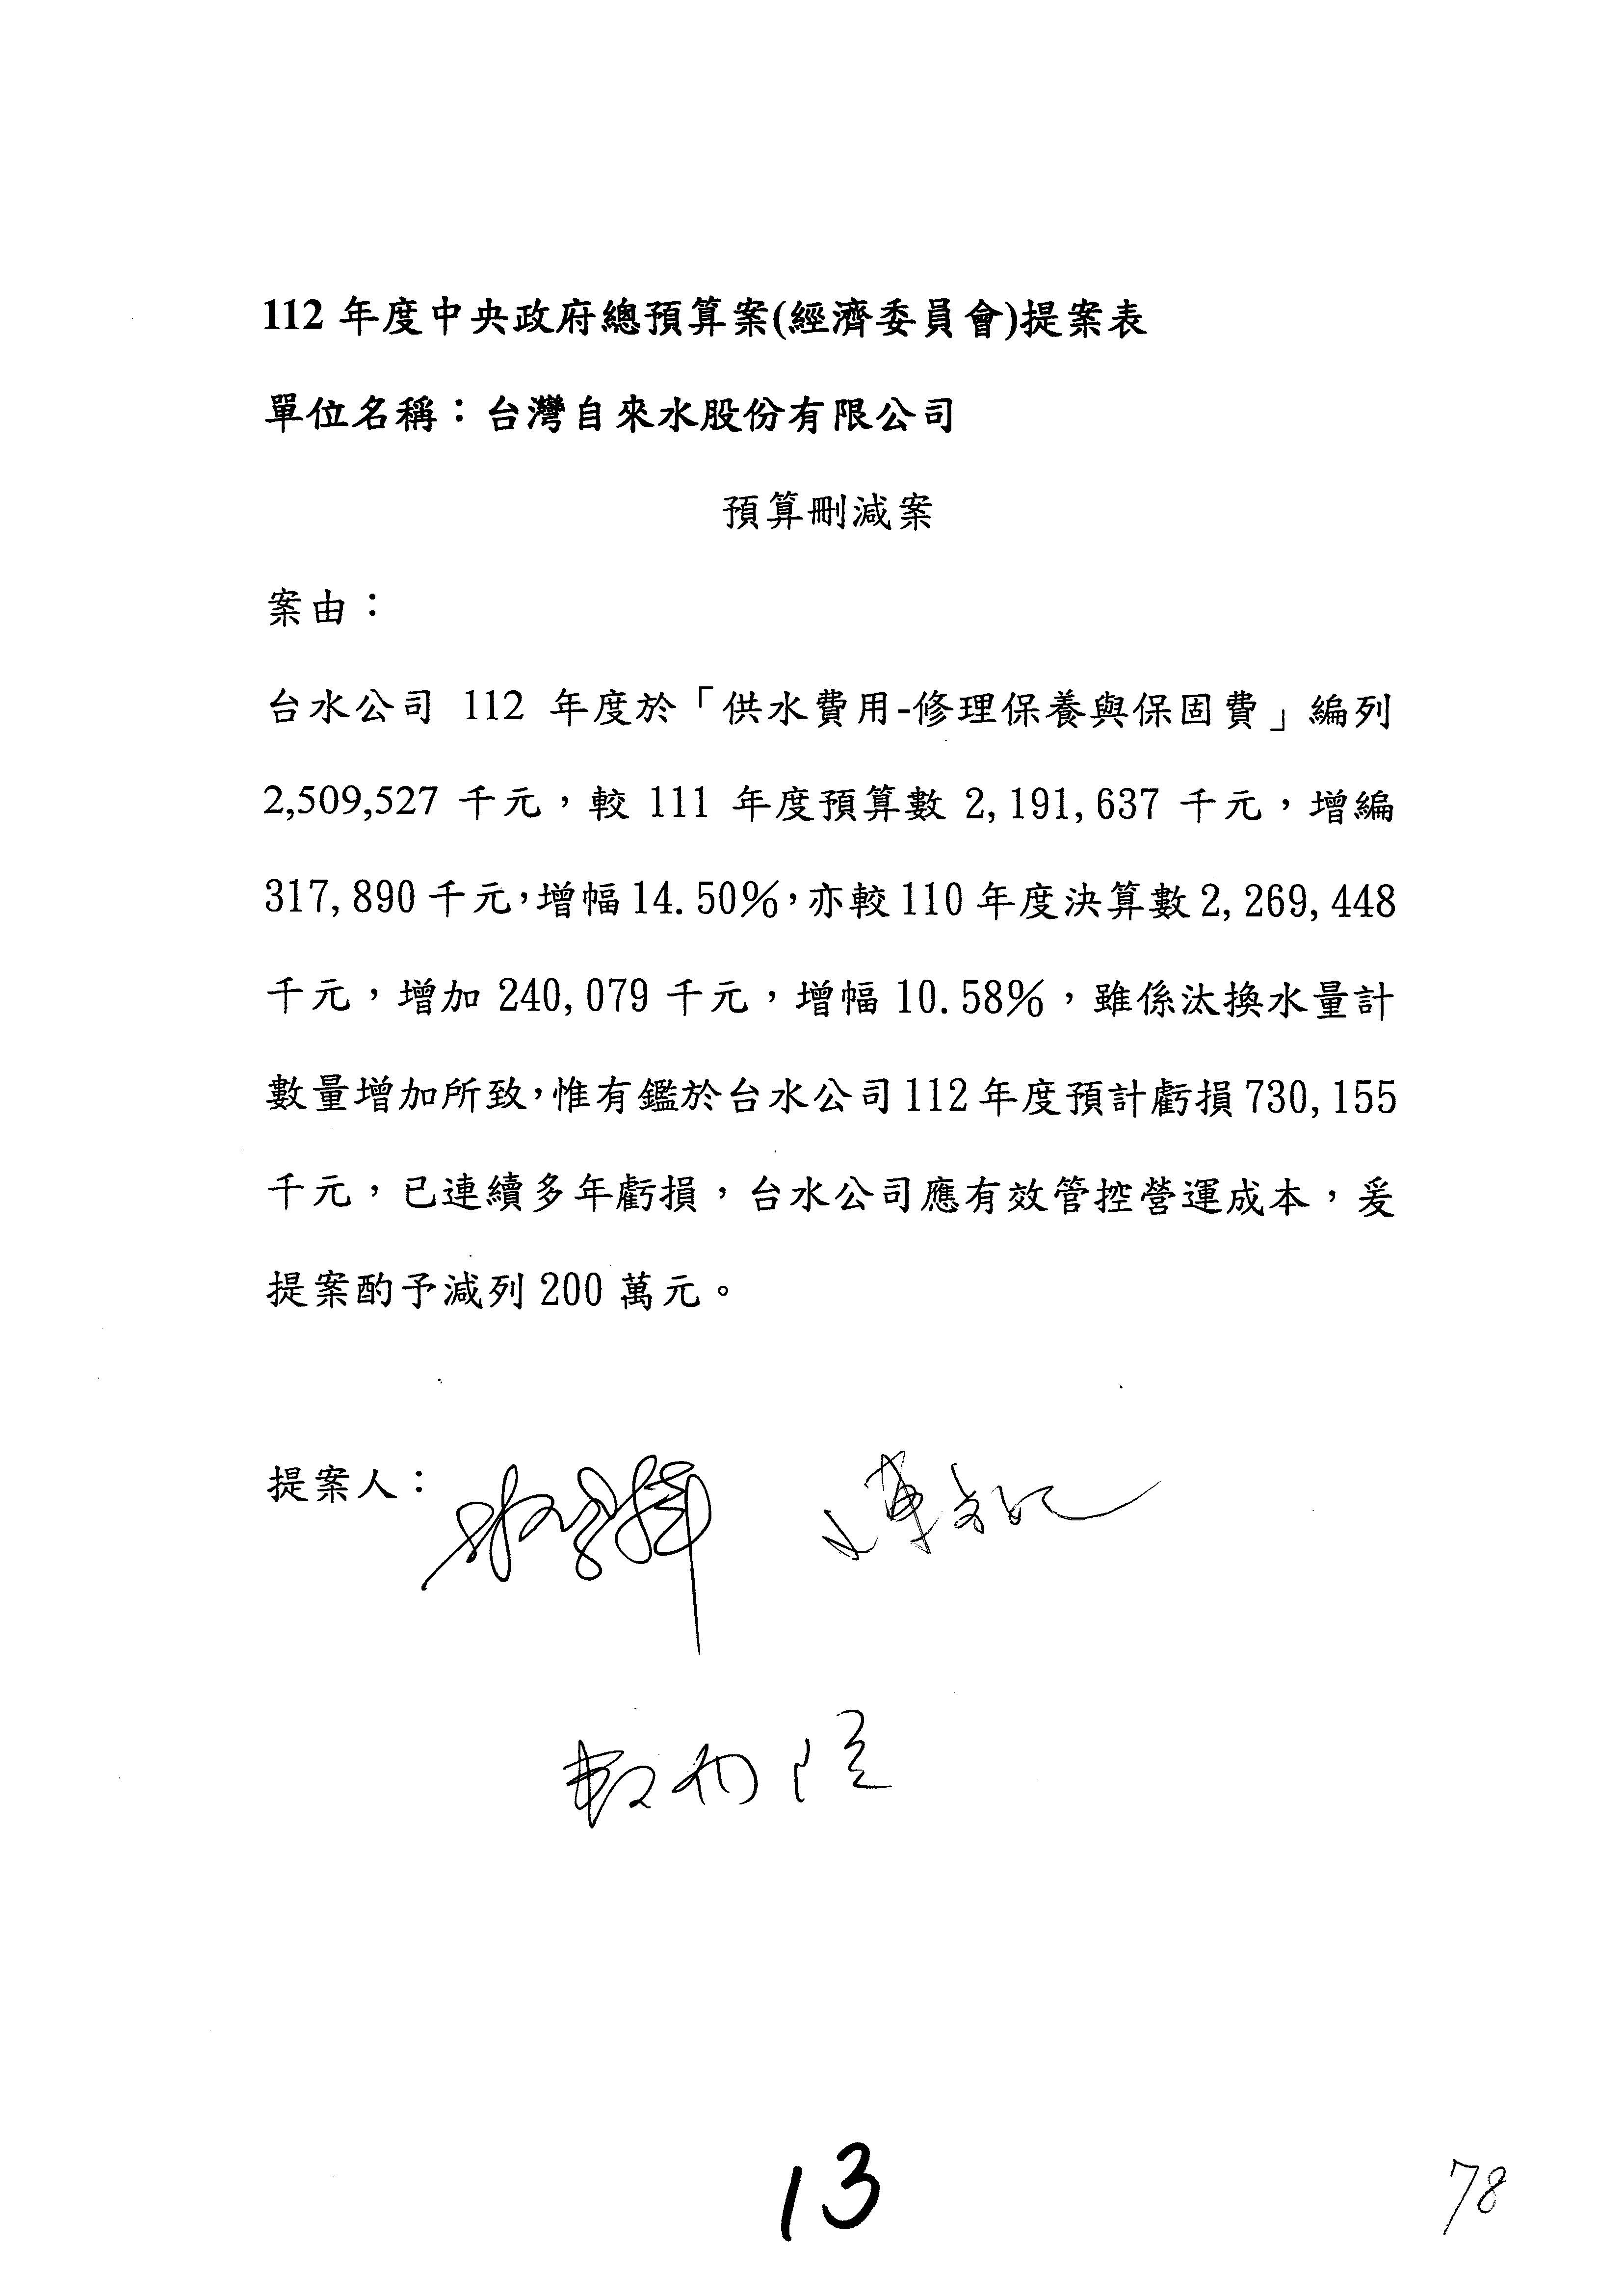 112 年度中央政府總預算案(經濟委員會)提案表
單位名稱：台灣自來水股份有限公司
預算刪減案
案由：
台水公司 112 年度於「供水費用-修理保養與保固費」編列
2,509,527 千元，較 111 年度預算數 2,191,637 千元，增編
317,890 千元，增幅 14.50%，亦較 110 年度決算數 2,269,448
千元，增加 240,079 千元，增幅 10.58%，雖係汰換水量計
數量增加所致，惟有鑑於台水公司 112 年度預計虧損 730,155
千元，已連續多年虧損，台水公司應有效管控營運成本，爰
提案酌予減列 200 萬元。
提案人：
13
78